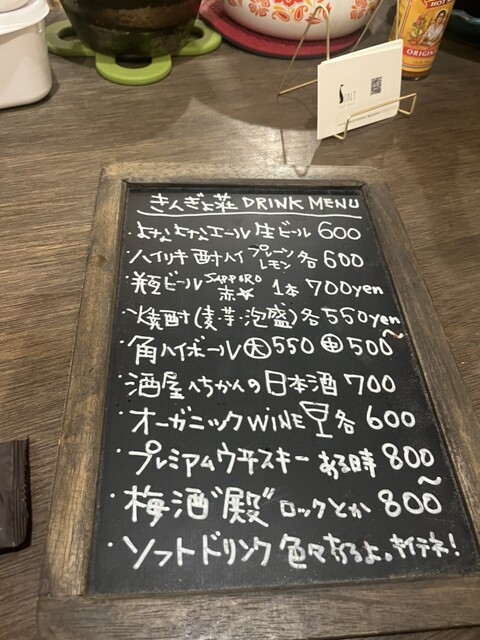 HOT S
ORIGINAL
SALT
きんぎょ荘 DRINK MENU
・よなよなエール生ビール 600
・ハイリキ酎ハイ プレーン レモン 各600
・瓶ビール SAPPORO 赤☆ 1本 700yen
・焼酎(麦・芋・泡盛)各550yen〜
・角ハイボール 大550 中500
・酒屋へちかんの日本酒 700
・オーガニックWINE 各600
・プレミアムウヰスキー ある時 800〜
・梅酒"殿" ロックとか 800
・ソフトドリンク 色々あるよ。キイテネ!